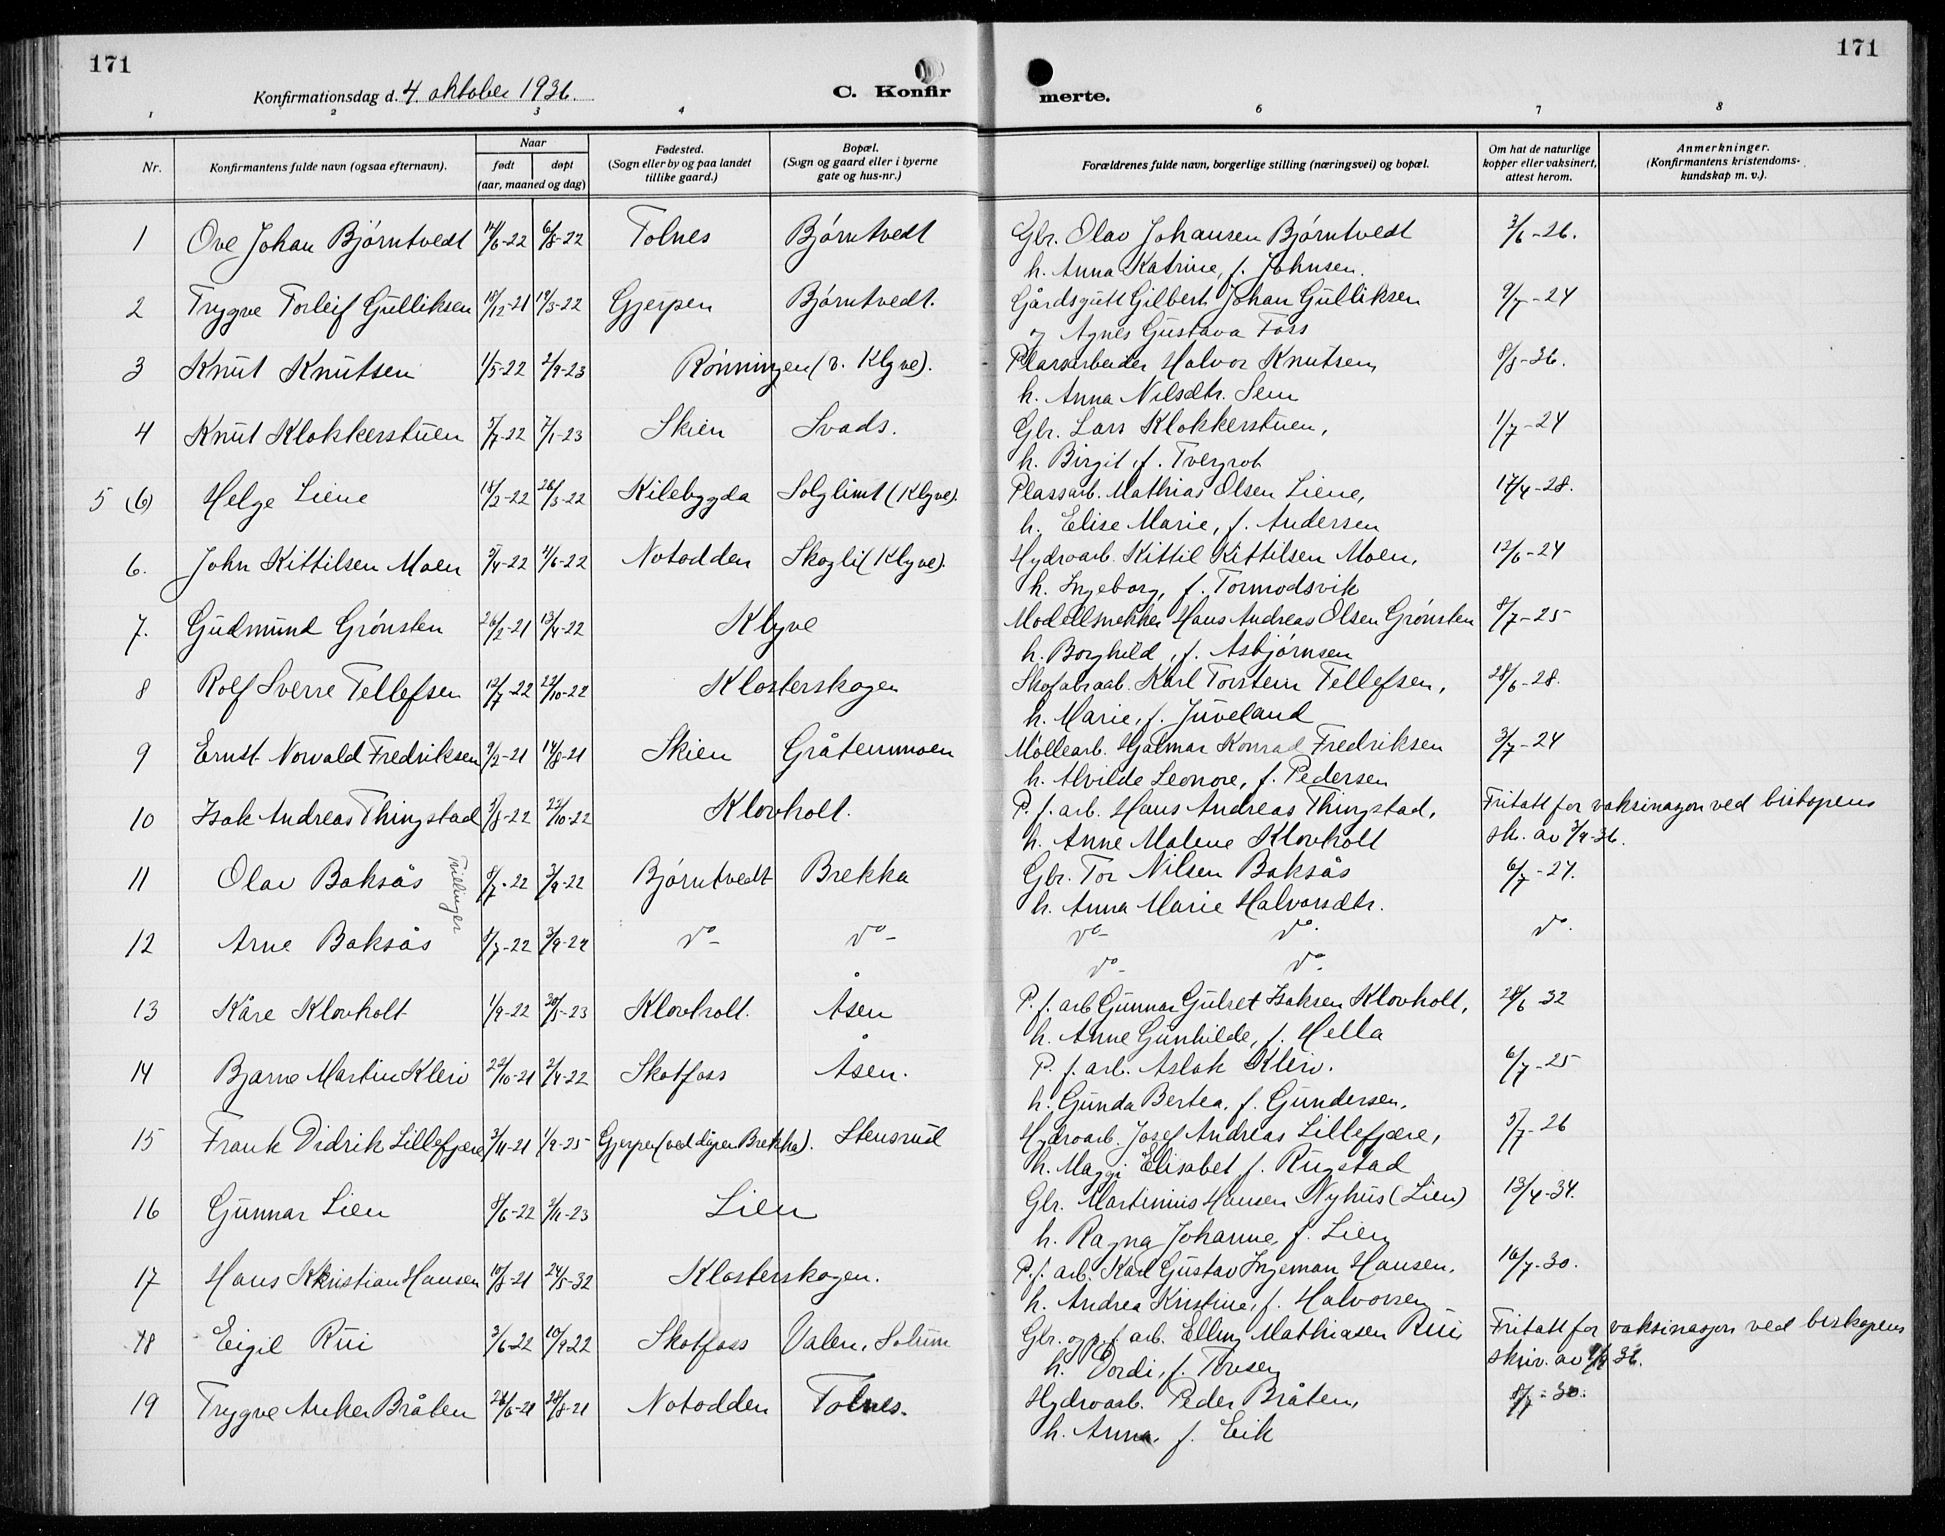 171
171
Konfirmationsdag d. 4. oktober 1936.
C. Konfirmerte.
1 2 3 4 6 7 8
Nr.
Konfirmantens fulde navn (ogsaa efternavn).
Naar
født
døpt
(aar, maaned og dag)
Fødested.
(Sogn eller by og paa landet
tillike gaard.)
Bopæl.
(Sogn og gaard eller i byerne
gate og hus-nr.)
Forældrenes fulde navn, borgerlige stilling (næringsvei) og bopæl.
Om hat de naturlige
kopper eller vaksinert,
attest herom.
Anmerkninger.
(Konfirmantens kristendoms-
kundskap m. v.).
1 Ove Johan Bjørntvedt 6/8-22 Tolnes Bjørntvedt Gbr. Olav Johansen Bjørntvedt 3/6-26.
h. Anna Katrine, f. Johnsen.
2 Trygve Torleif Gulliksen 19/3-22 Gjerpen Bjørntvedt. Gårdsgutt Gilbert Johan Gulliksen 9/7-24
og Agnes Gustava Foss
3 Knut Knutsen 1/5-22 2/9-23 Rønningen (v. Klyve). Plassarbeider Halvor Knutsen, 8/8-36.
h. Anna Nilsdtr. Sem
4 Knut Klokkerstuen 7/1-23 Skien Svads. Gbr. Lars Klokkerstuen, 1/7-24
h. Birgit, f. Tvergrot
5 (6) Helge Liene 26/3-22 Kilebygda Solglimt (Klyve). Plassarb. Mathias Olsen Liene, 17/4-28.
h. Elise Marie, f. Andersen
6. John Kittilsen Moen 5/4-22 Notodden Skogli (Klyve). Hydroarb. Kittil Kittilsen Moen, 12/6-24
h. Ingeborg, f. Tormodsvik
7. Gudmund Grønsten 26/2-21 13/4-22 Klyve Modellsnekker Hans Andreas Olsen Grønsten 8/7-25
h. Borghild, f. Asbjørnsen
8 Rolf Sverre Tellefsen 12/7-22 22/10-22 Klosterskogen Skofabraab. Karl Torstein Tellefsen, 28/6-28.
h. Marie, f. Juveland
9 Ernst Norvald Fredriksen 9/2-21 14/8-21 Skien Gråtenmoen Møllearb. Hjalmar Konrad Fredriksen 3/7-24
h. Alvilde Leonore, f. Pedersen
10 Isak Andreas Thingstad 22/10-22 Klovholt. P. f. arb. Hans Andreas Thingstad, Fritatt for vaksinasjon ved biskopens
h. Anne Malene Klovholt sk. av 3/9-36.
11 Olav Baksås Tvillinger 8/7-22 3/9-22 Bjørntvedt Brekka Gbr. Tor Nilsen Baksås 6/7-27.
h. Anna Marie Halvorsdtr.
12 Arne Baksås 8/7-22 do - do - do - do. do.
do - do.
13 Kåre Klovholt 1/9-22 20/5-23 Klovholt. Åsen P. f. arb Gunnar Gulret Isaksen Klovholt, 28/6 32
h. Anne Gunhilde, f. Hella
14 Bjarne Martin Kleiv 23/10-21 2/4-22 Skotfoss Åsen. P. f. arb. Aslak Kleiv. 6/7-25
h. Gunda Bertea, f. Gundersen,
15 Frank Didrik Lillefjære 3/11-21 1/9-25 Gjerpen (ved digeren Brekka). Stensrud Hydroarb. Josef Andreas Lillefjære, 5/7-26
h. Maggi Elisabet f. Rugstad
16 Gunnar Lien 8/6-22 Lien Gbr. Martinius Hansen Nyhus (Lien) 13/4-34.
h. Ragna Johanne, f. Lien
17 Hans Kristian Hansen 10/8-21 24/5-32 Klosterskogen. P. f. arb. Karl Gustav Ingeman Hansen, 16/7-30.
h. Andrea Kristine, f. Halvorsen
18 Eigil Rui 3/6-22 10/9 22 Skotfoss Valen, Solum Gbr. og p. f. arb. Elling Mathiasen Rui Fritatt for vaksinasjon ved biskopens
h. Dordi, f. Tovsen skriv. av 36.
19 Trygve Anker Bråten 28/8-21 Notodden Tolnes. Hydroarb. Peder Bråten, 8/7-30.
h. Anna, f. Eik